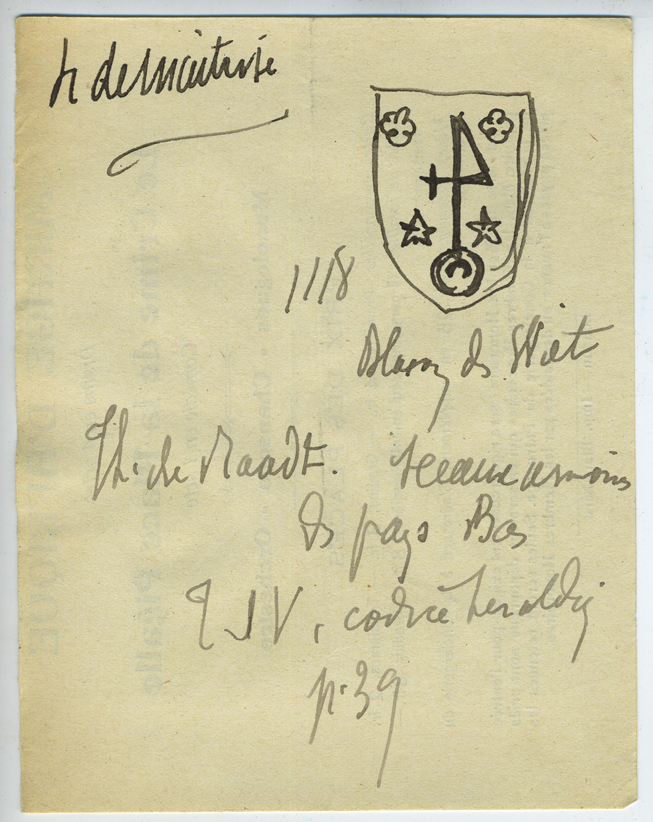 h de maîtrise
1118
Blason de Wiet
Th. de Raadt. sceaux armoiriés
Ds pays Bas
T IV, codice heraldiq
p. 39